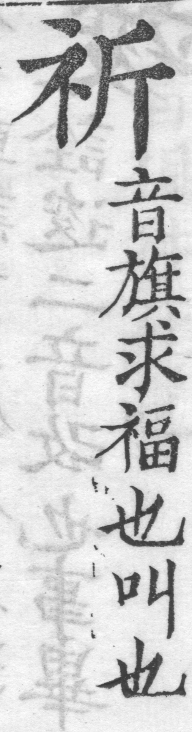 祈
音旗求福也叫也